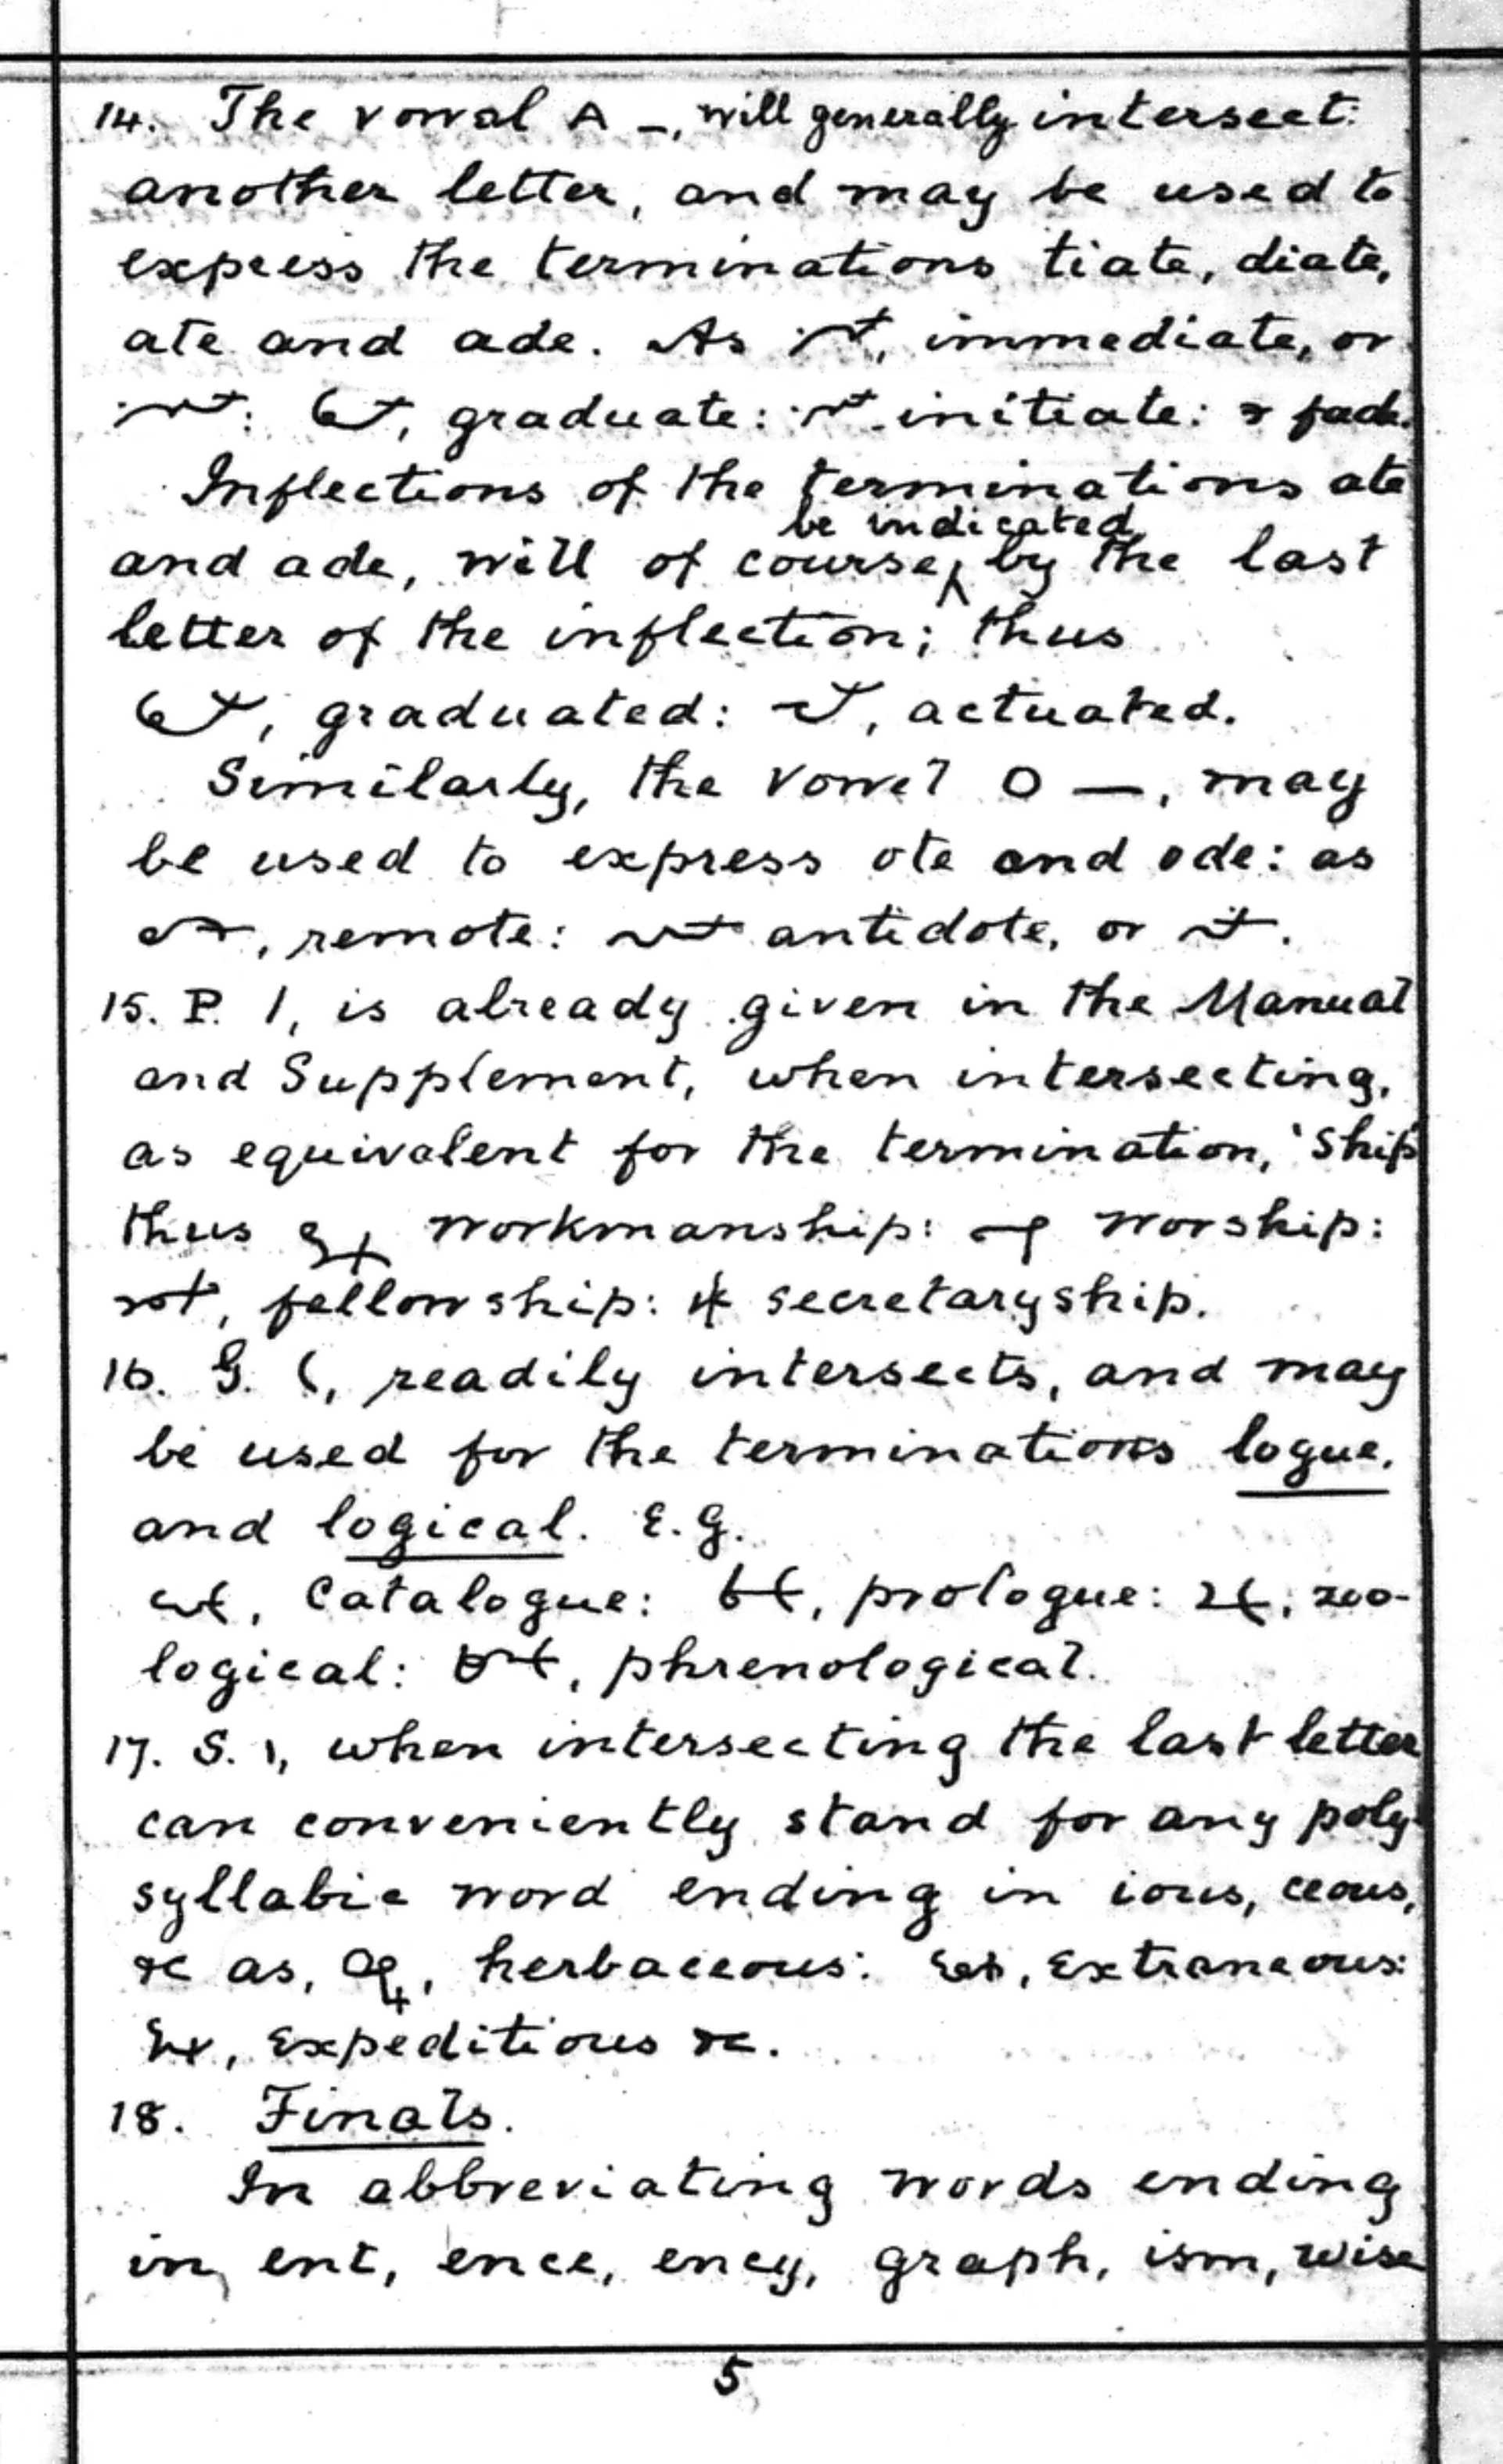 14. The vowel A –, will generally intersect
another letter, and may be used to
express the terminations tiate, diate,
ate and ade. As , immediate, or
: , graduate: initiate: fade.
Inflections of the terminations ate
be indicated
and ade, will of course, ‸ by the last
letter of the inflection; thus
, graduated: , actuated.
Similarly, the vowel O —, may
be used to express ote and ode: as
, remote: antidote, or .
15. P. /, is already given in the Manual
and Supplement, when intersecting,
as equivalent for the termination, 'Ship'
thus workmanship: worship:
, fellowship: secretaryship.
16. G. (, readily intersects, and may
be used for the terminations logue,
and logical. E.G.
, Catalogue: , prologue: , zoo-
logical: , phrenological.
17. S. \, when intersecting the last letter
can conveniently stand for any poly-
syllabic word ending in ious, ceous,
&c as, , herbaceous: , Extraneous:
, Expeditious &c.
18. Finals.
In abbreviating words ending
in, ent, ence, ency, graph, ism, wise
5